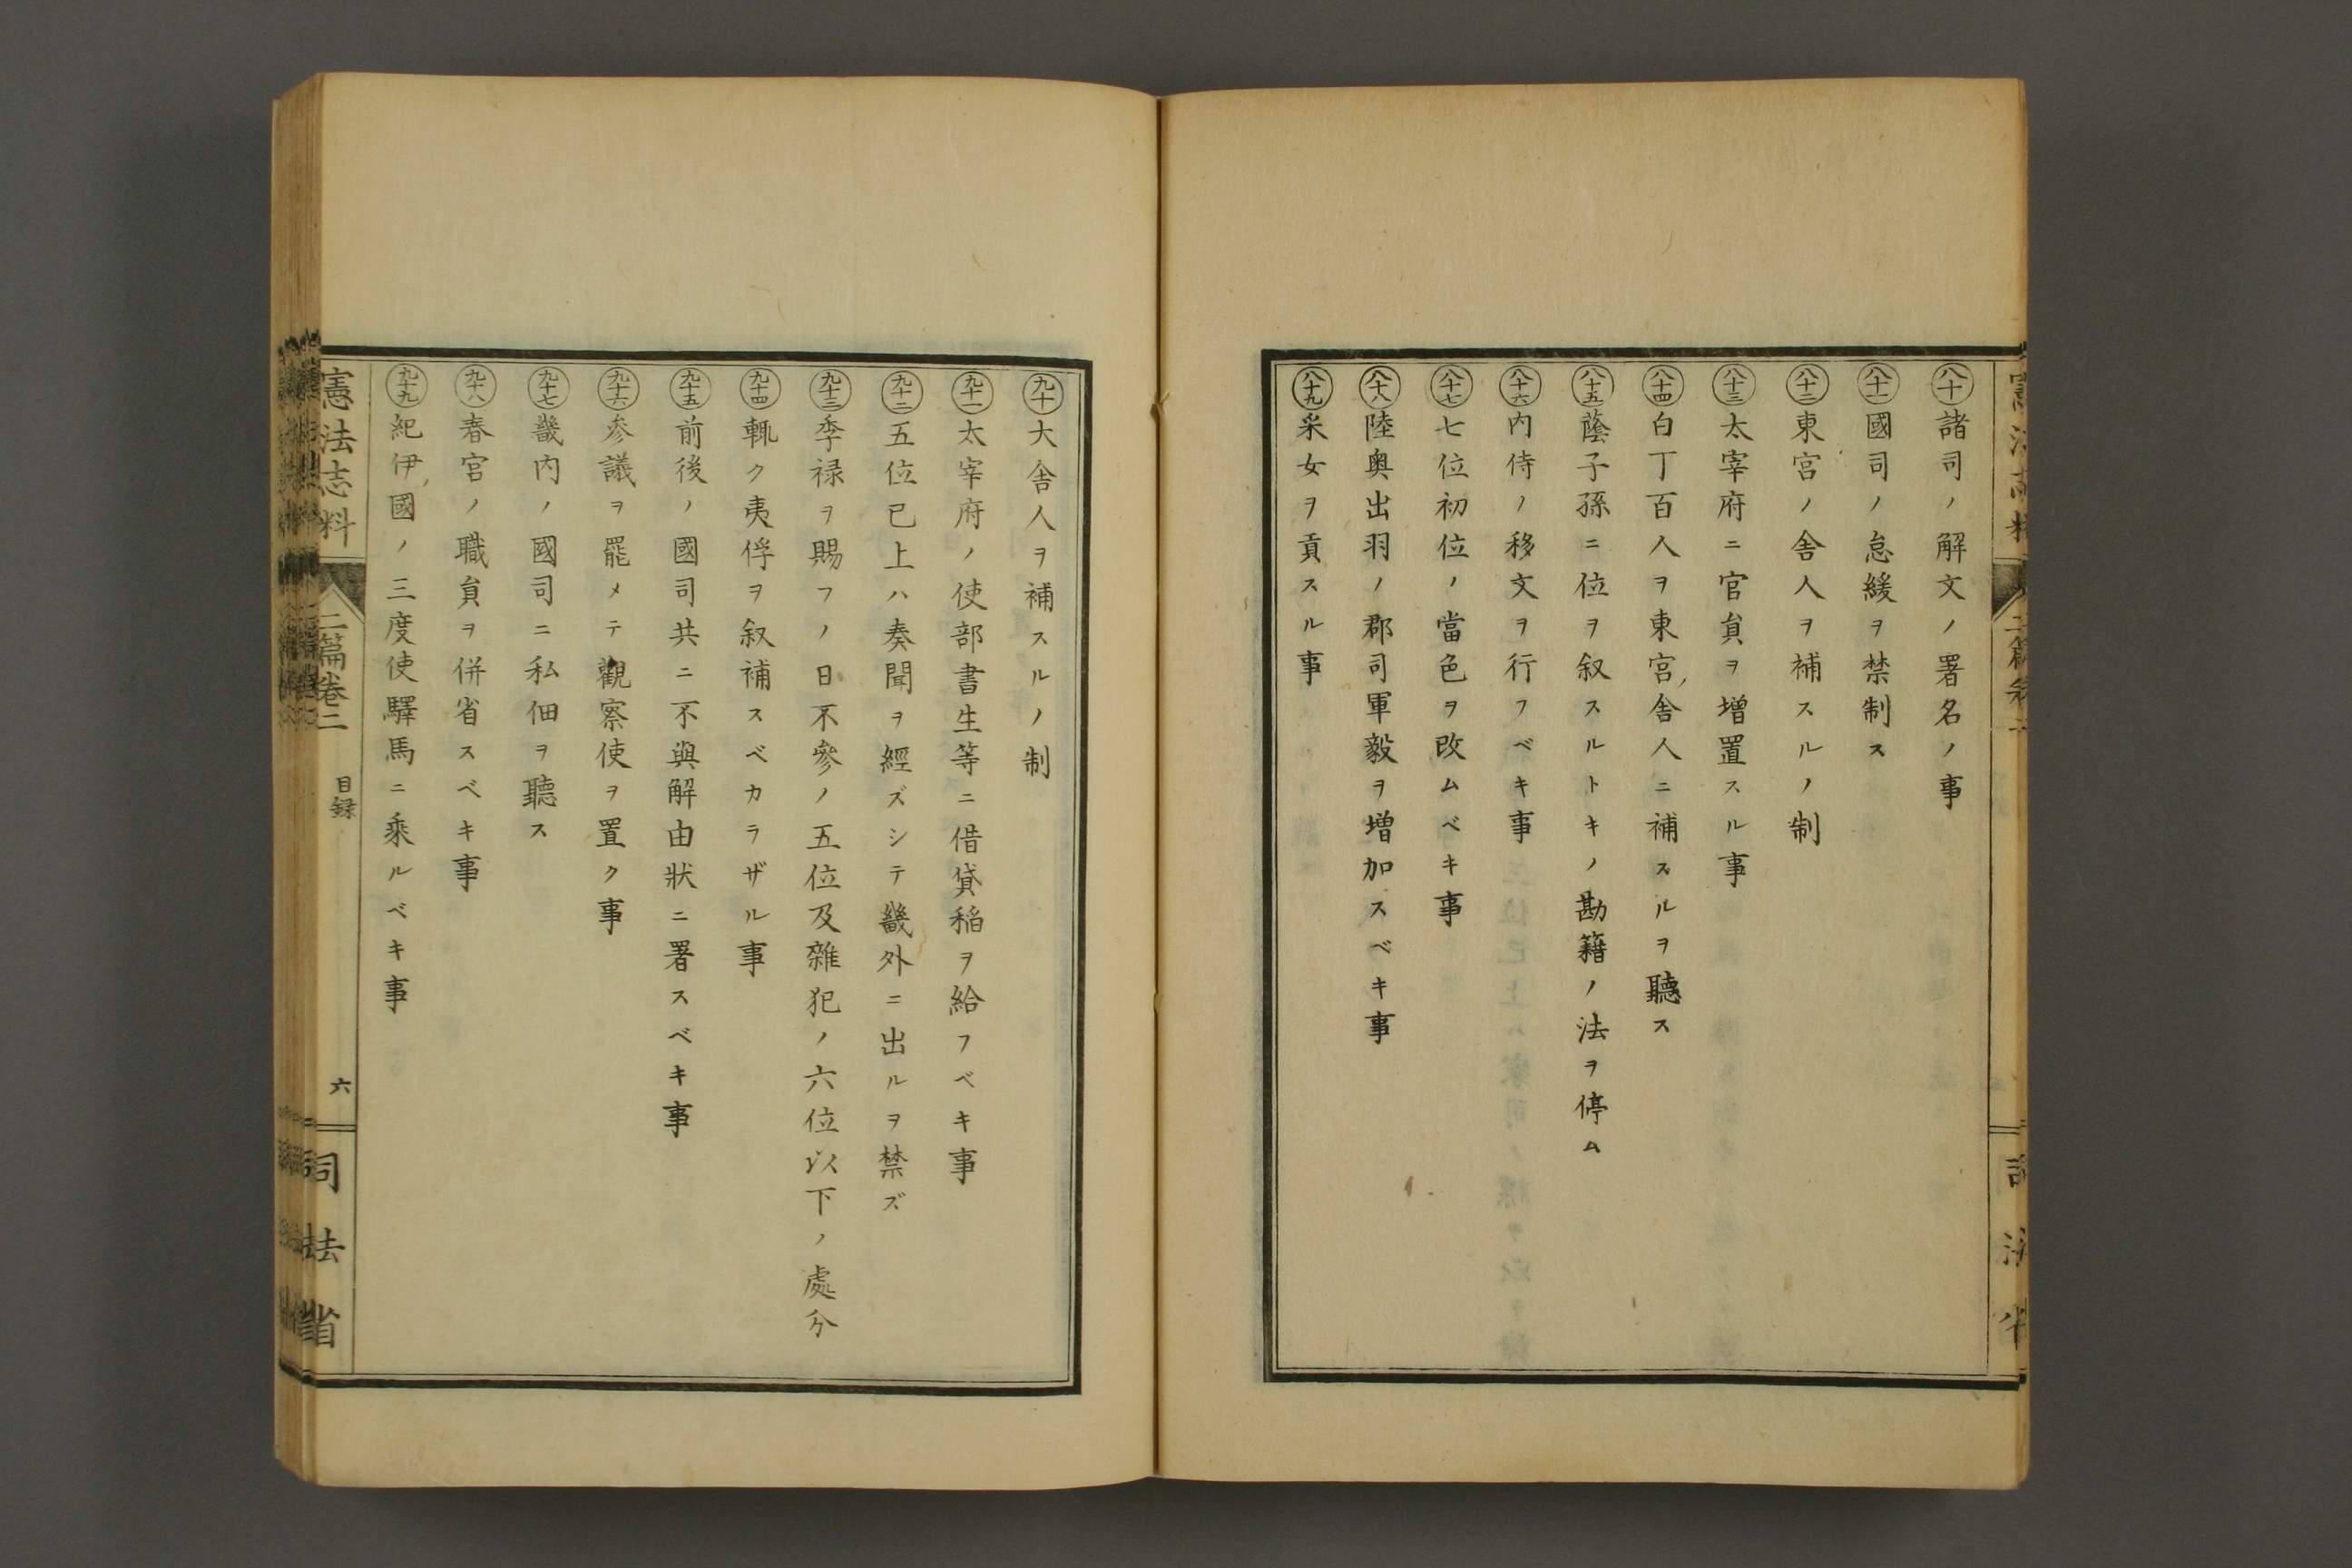 八十 諸司ノ解文ノ署名ノ事
八十一 國司ノ怠緩ヲ禁制ス
八十二 東宮ノ舎人ヲ補スルノ制
八十三 太宰府ニ官貟ヲ增置スル事
八十四 白丁百人ヲ東宮ノ舎人ニ補スルヲ聽ス
八十五 蔭子孫ニ位ヲ叙スルトキノ勘籍ノ法ヲ停ム
八十六 内侍ノ移文ヲ行フベキ事
八十七 七位初位ノ當色ヲ改ムベキ事
八十八 陸奥出羽ノ郡司軍毅ヲ增加スベキ事
八十九 采女ヲ貢スル事
九十 大舎人ヲ補スルノ制
九十一 太宰府ノ使部書生等ニ借貸稲ヲ給フベキ事
九十二 五位已上ハ奏聞ヲ經ズシテ畿外ニ出ルヲ禁ズ
九十三 季禄ヲ賜フノ日不參ノ五位及雜犯ノ六位以下ノ處分
九十四 輒ク夷俘ヲ叙補スベカラザル事
九十五 前後ノ國司共ニ不與解由狀ニ署スベキ事
九十六 參議ヲ罷メテ觀察使ヲ置ク事
九十七 畿内ノ國司ニ私佃ヲ聽ス
九十八 春宮ノ職貟ヲ併省スベキ事
九十九 紀伊國ノ三度使驛馬ニ乘ルベキ事
憲法志料 二篇卷二 目録 六 司法省